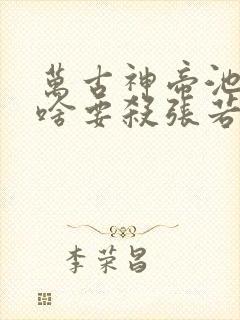 萬古神帝池
啥要殺張若
李荣昌